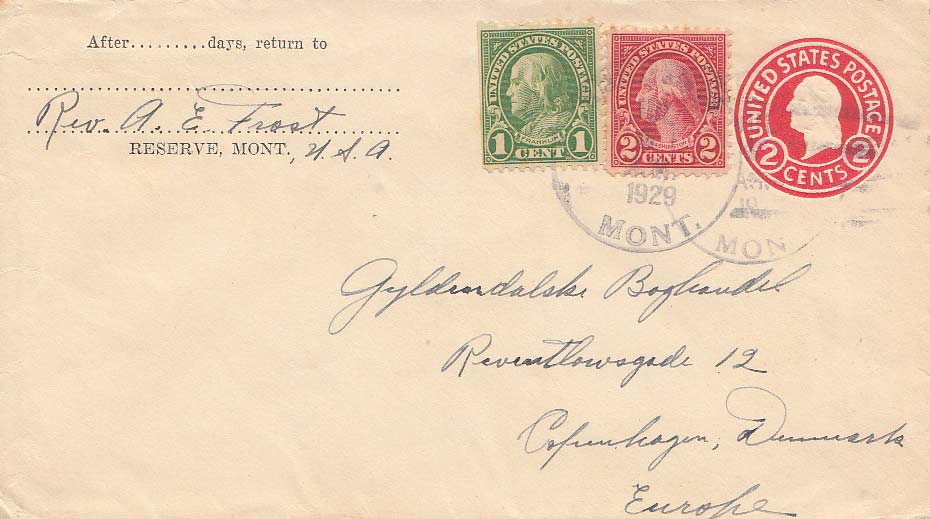 After.........days, return to
Rev. A. E. Frost
RESERVE, MONT., U.S.A.
UNITED STATES POSTAGE
FRANKLIN
1 CENT 1
UNITED STATES POSTAGE
WASHINGTON
2 CENTS 2
UNITED STATES POSTAGE
2 CENTS 2
1929
MONT.
MON
Gyldendalske Boghandel
Reventlowsgade 12
Copenhagen, Denmark
Europe